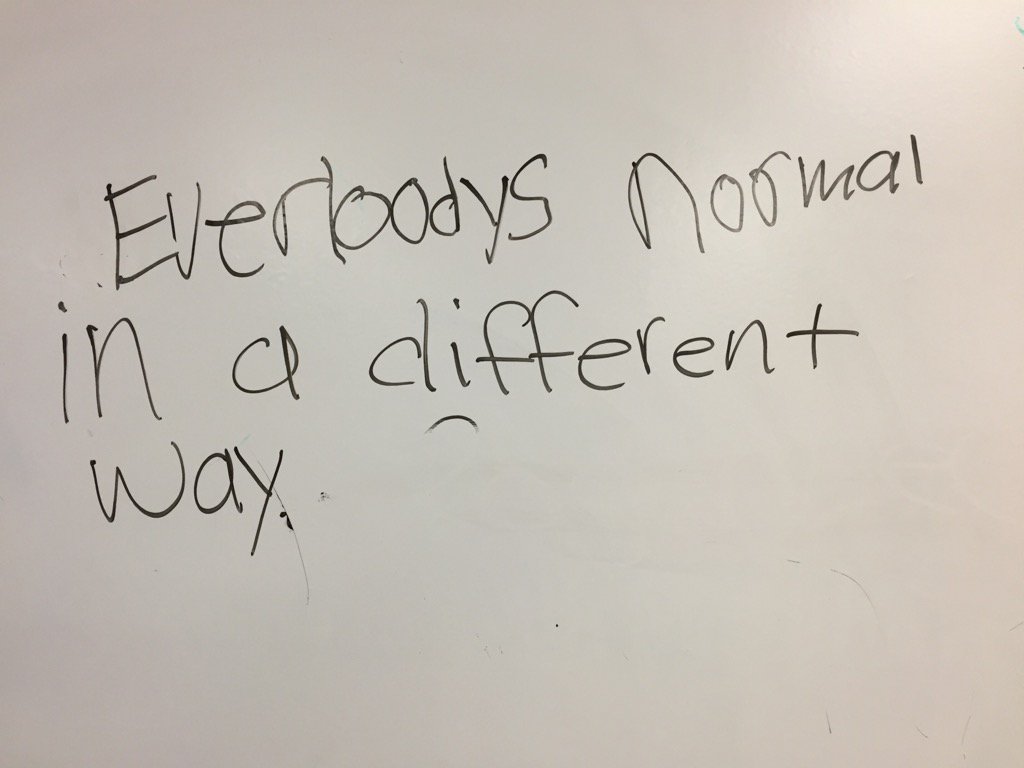 Everbodys normal
in a different
way.